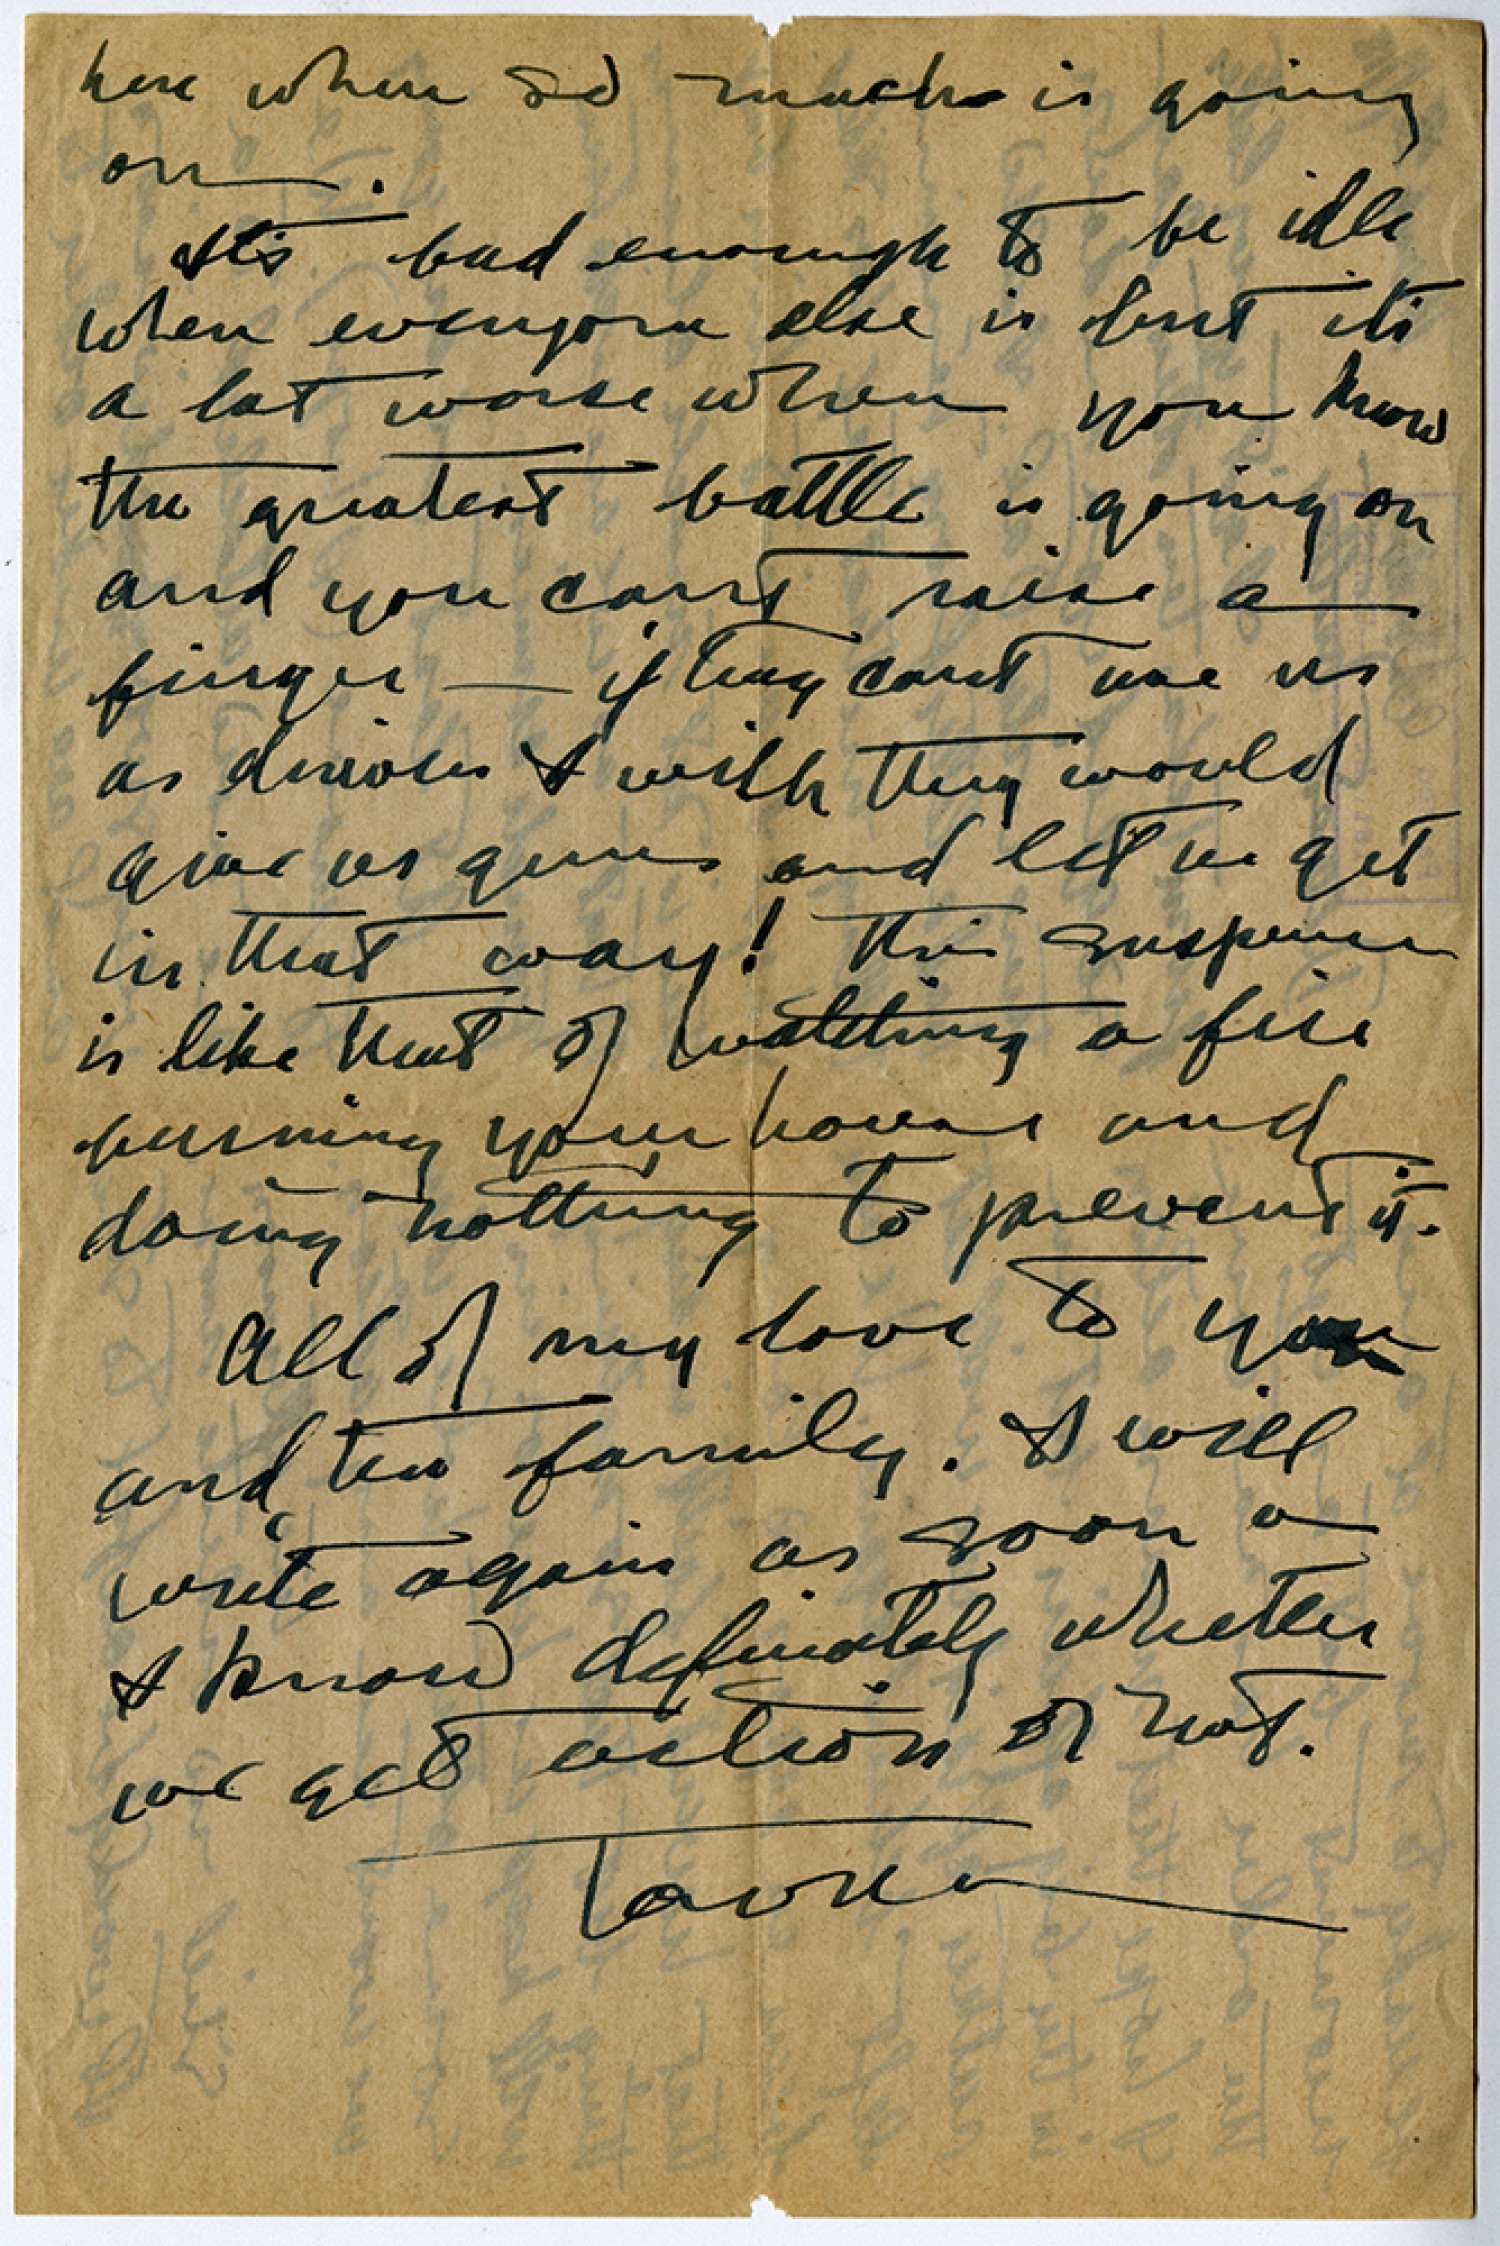 here when so much is going
on.
It's bad enough to be idle
when everyone else is but its
a lot worse when you know
the greatest battle is going on
and you can't raise a
finger — if they cant use us
as drivers I wish they would
give us guns and let us get
in that way! This suspense
is like that of watching a fire
burning your house and
doing nothing to prevent it.
All of my love to you
and the family. I will
write again as soon as
I know definitely whether
we get action or not.